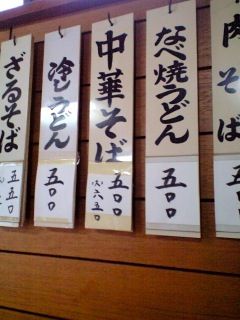 肉
なべ焼うどん
五〇〇
中華そば
五〇〇
(大)六五〇
冷しうどん
五〇〇
ざるそば
五五〇